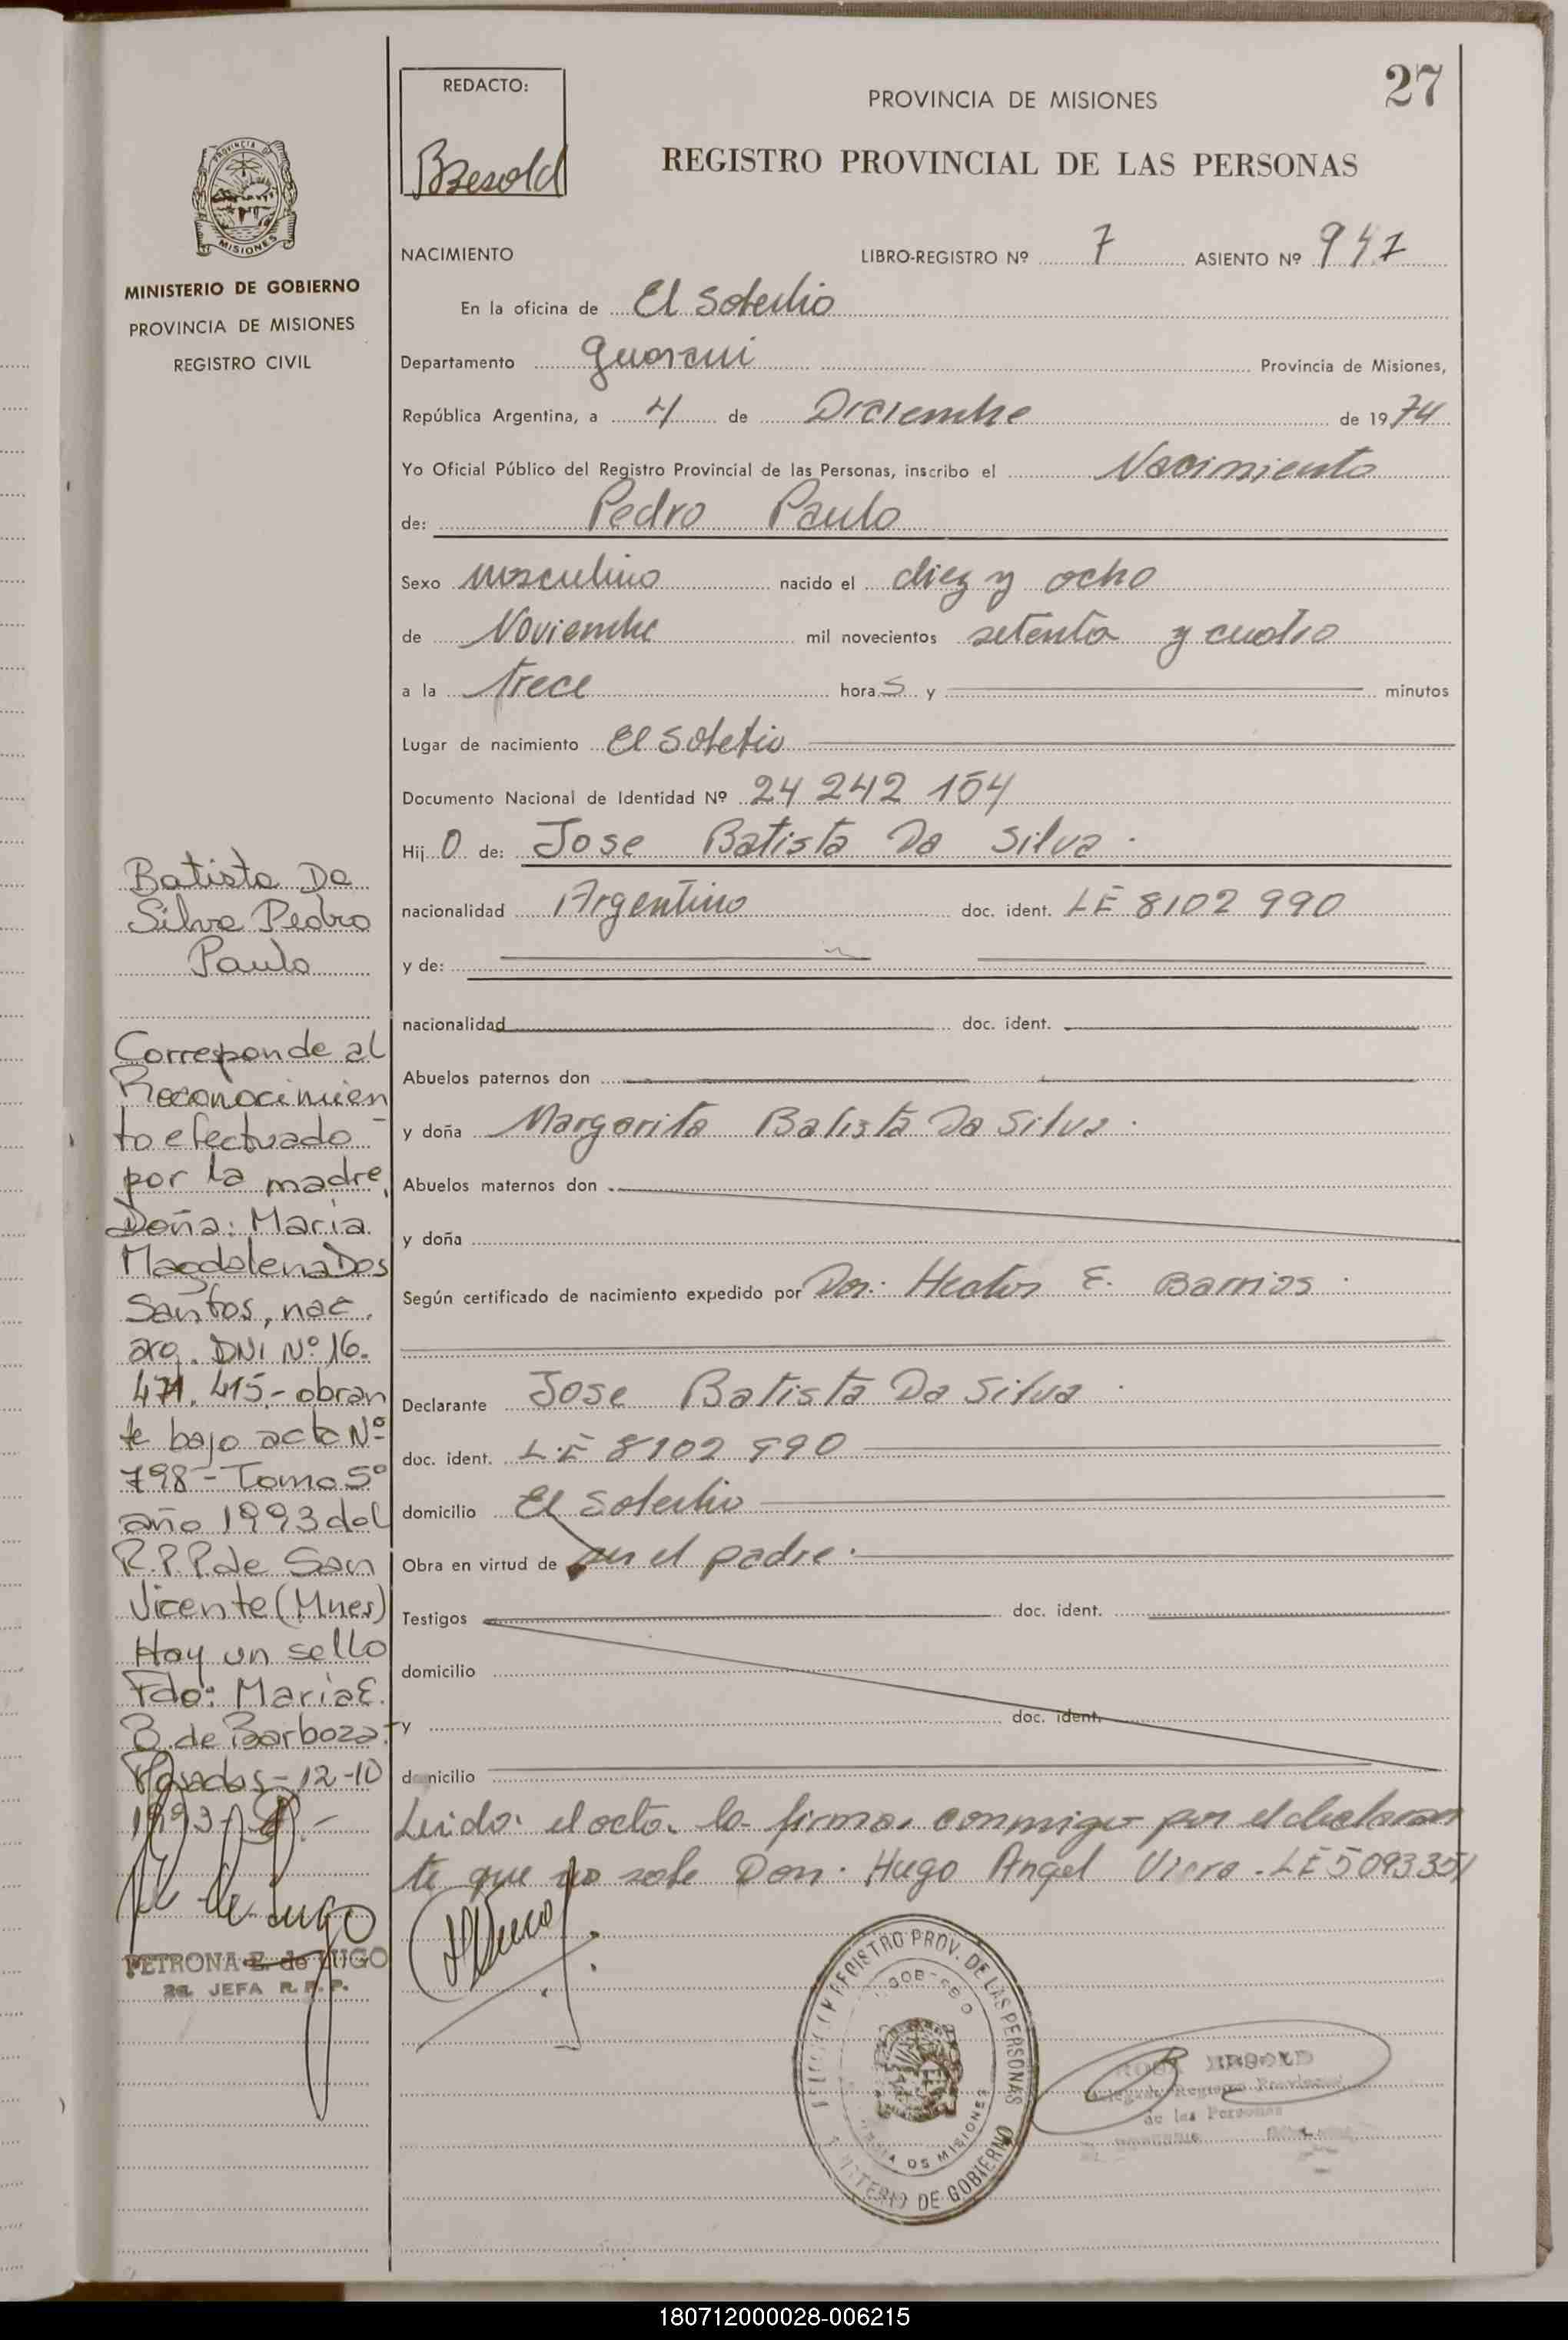 27
REDACTO:
Bresold
PROVINCIA DE MISIONES
REGISTRO PROVINCIAL DE LAS PERSONAS
PROVINCIA DE
MISIONES
MINISTERIO DE GOBIERNO
PROVINCIA DE MISIONES
REGISTRO CIVIL
NACIMIENTO LIBRO-REGISTRO Nº 7 ASIENTO Nº 947
En la oficina de El Soberbio
Departamento Guarani Provincia de Misiones,
República Argentina, a 4 de Diciembre de 1974
Yo Oficial Público del Registro Provincial de las Personas, inscribo el Nacimiento
de: Pedro Paulo
Sexo masculino nacido el diez y ocho
de Noviembre mil novecientos setenta y cuatro
a la trece horas y minutos
Lugar de nacimiento El Soberbio
Documento Nacional de Identidad Nº 24 242 154
Hijo de: Jose Batista Da Silva.
nacionalidad Argentino doc. ident. LE 8102 990
y de:
nacionalidad doc. ident.
Abuelos paternos don
y doña Margarita Batista Da Silva.
Abuelos maternos don
y doña
Según certificado de nacimiento expedido por Dor: Hector E. Barrios.
Declarante Jose Batista Da Silva.
doc. ident. L.E 8102 990
domicilio El Soberbio
Obra en virtud de ser el padre.
Testigos doc. ident.
domicilio
y doc. ident.
domicilio
Leido el acta la firma conmigo por el declaran
te que no sabe Don. Hugo Angel Viera. LE 5093351
Batista Da
Silva Pedro
Paulo
Corresponde al
Reconocimien
to efectuado
por la madre,
Doña: Maria
Magdalena Dos
Santos, nac.
arg. DNI Nº 16.
471.415.- obran
te bajo acta Nº
798 - Tomo 5º
año 1993 del
R.P.P. de San
Vicente (Mnes)
Hay un sello
Fdo: Maria E.
B. de Barboza.-
Posadas - 12-10
1993.-
de Lugo
PETRONA E. de LUGO
2a. JEFA R. P. P.
REGISTRO PROV. DE LAS PERSONAS
MINISTERIO DE GOBIERNO
DE MISIONES
Registro Provincial
de las Personas
180712000028-006215